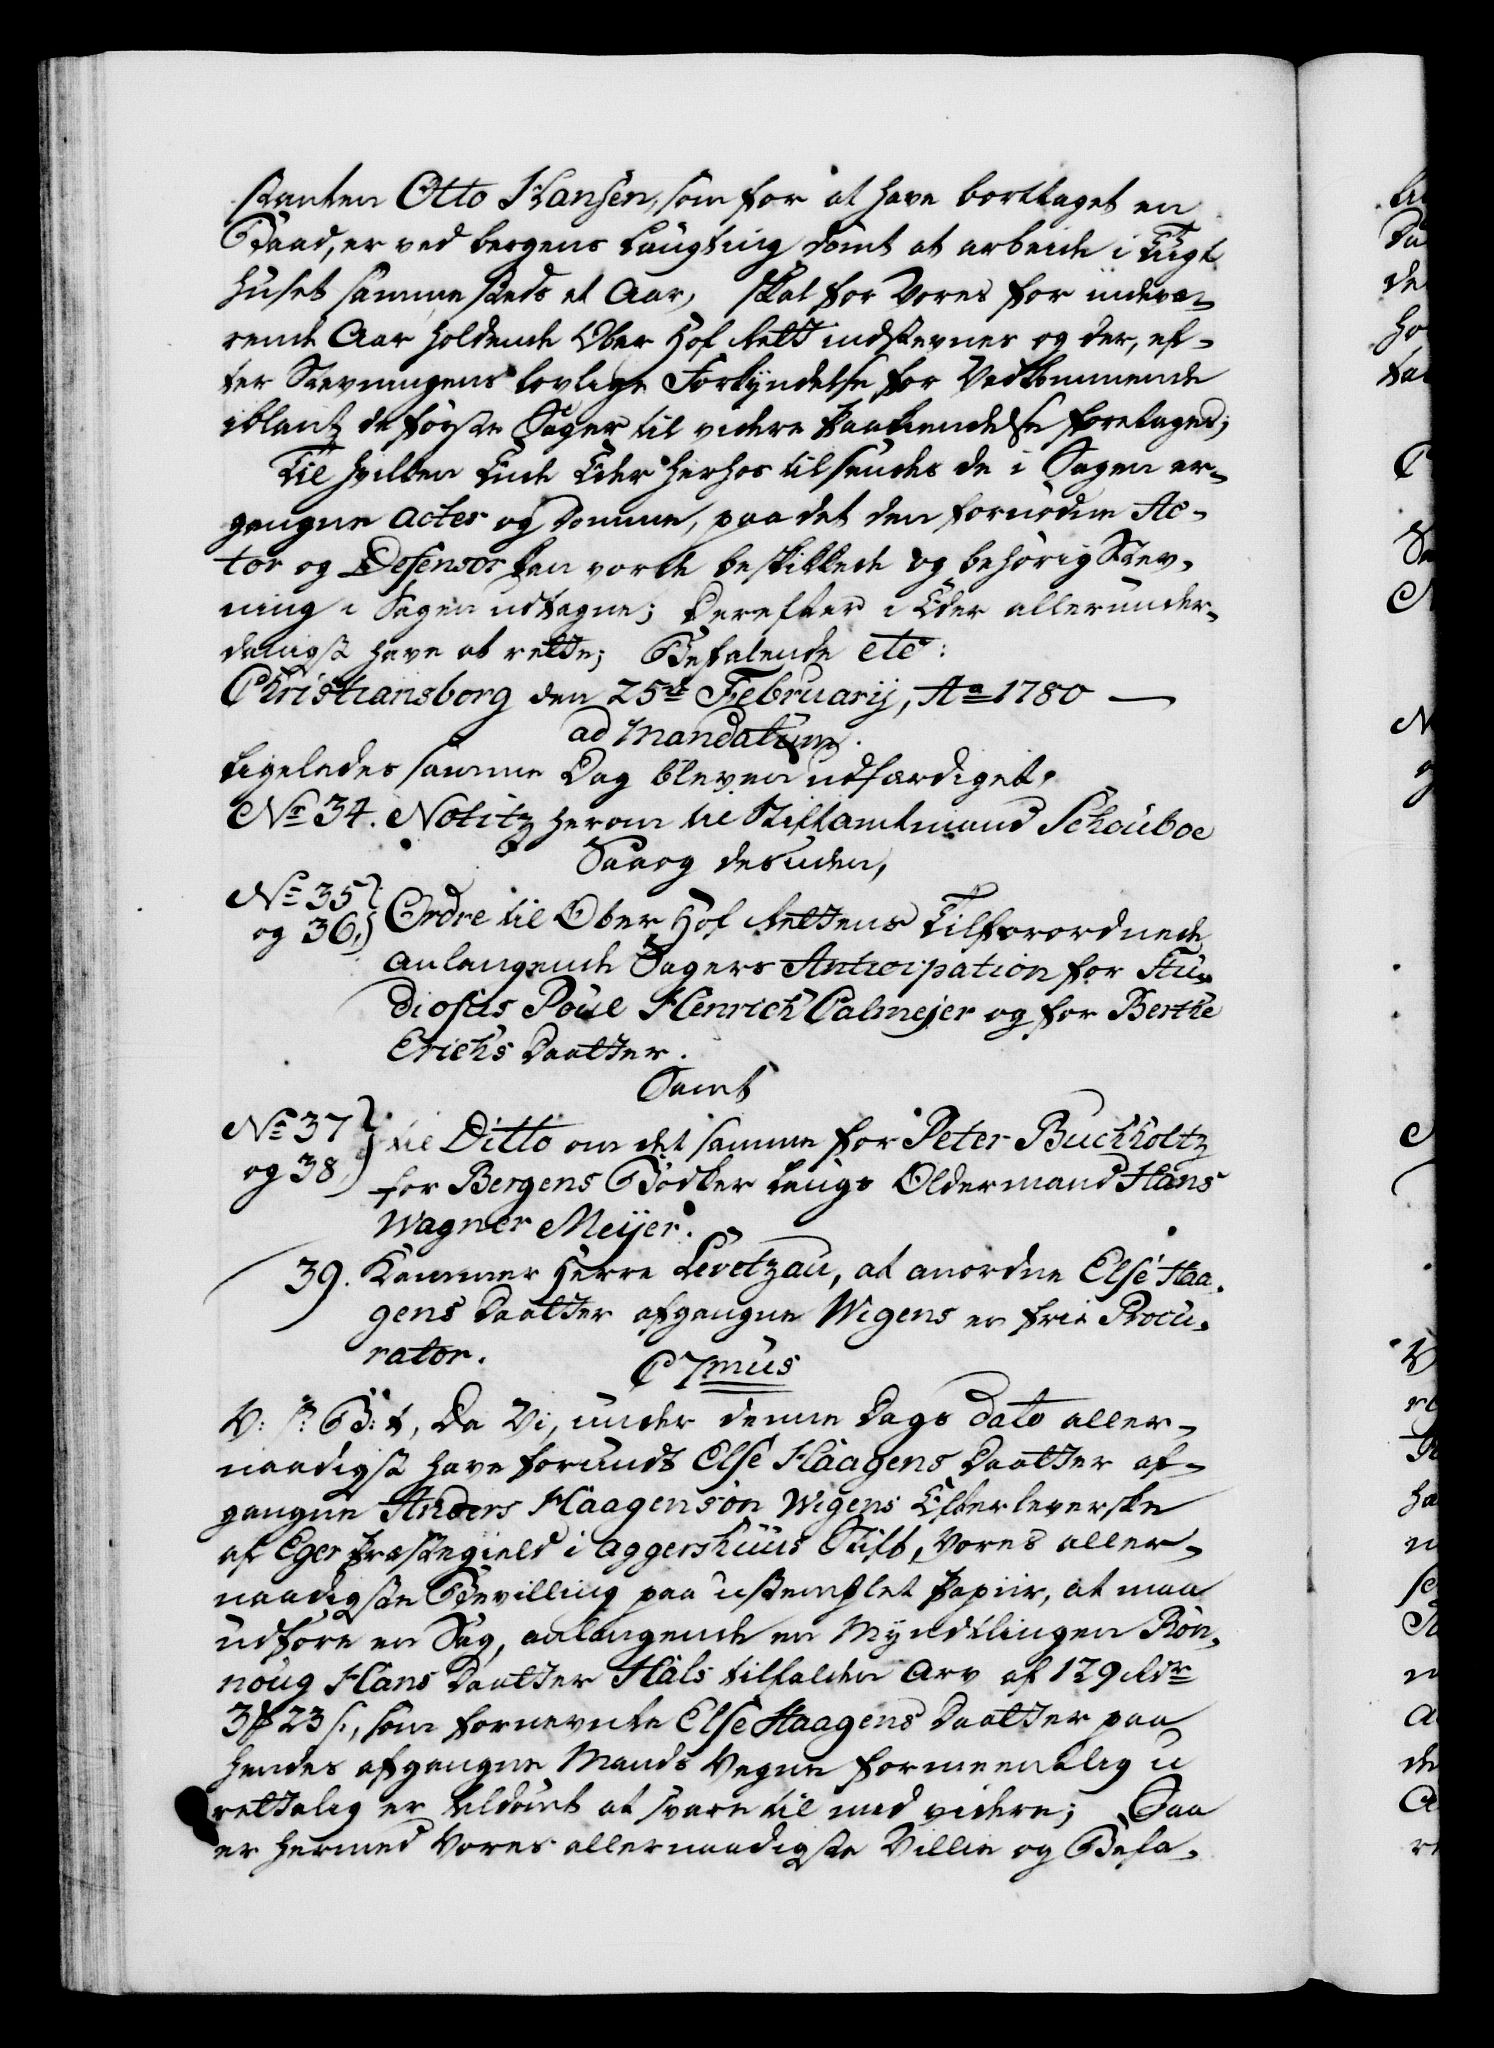 stanten Otto Hansen, som for at have borttaget en
Baad, er ved bergens Laugting dömt at arbeide i Tugt
huset sammesteds et Aar, skal for Vores for indevæ-
rende Aar holdende Ober Hof Rett indstevnes og der, ef-
ter Stevningens lovlige Forkyndelse for Vedkommende
iblant de förste Sager til videre Paakiendelse foretages;
Til hvilken Ende Eder herhos tilsendes de i Sagen er-
gangne Acter og Domme, paa det den fornödne Ac-
tor og Defensor kan vorde beskikkede og behörig Stev-
ning i Sagen udtagne; Derefter i Eder allerunder-
danigst have at rette; Befalende etc:
Christiansborg den 25de Februarij, Ao 1780 —
ad Mandatum.
Ligeledes samme Dag bleven udfærdiget.
No 34. Notitz herom til Stiftamtmand Schouboe
Saaog desuden,
No 35
og 36. Ordre til Ober Hof Rettens Tilforordnede
anlangende Sagers Anticipation for Stu-
diosus Poul Henrich Calmejer og for Berthe
Erichs Daatter.
Samt
No 37
og 38 til Ditto om det samme for Peter Buchholtz
for Bergens Bödker Laugs Oldermand Hans
Wagner Meijer.
39. Kammer Herre Levetzau, at anordne Else Haa-
gens Daatter afgangne Wigens en frie Procu-
rator.
C 7mus
V: S: B: t, Da Vi, under denne Dags Dato aller-
naadigst have forundt Else Haagens Daatter af-
gangne Anders Haagensön Wigens Efterleverske
af Eger Præstegield i Aggershuus Stift, Vores aller-
naadigste Bevilling paa ustemplet Papiir, at maa
udföre en Sag, anlangende en Myndtlingen Rön-
noug Hans Daatter Hals tilfalden Arv af 129 Rdr
3 # 23 s., som fornevnte Else Haagens Daatter paa
hendes afgangne Mands Vegne formeentlig u
rettelig er tildömt at svare til med videre; Saa
er hermed Vores allernaadigste Villie og Befa-